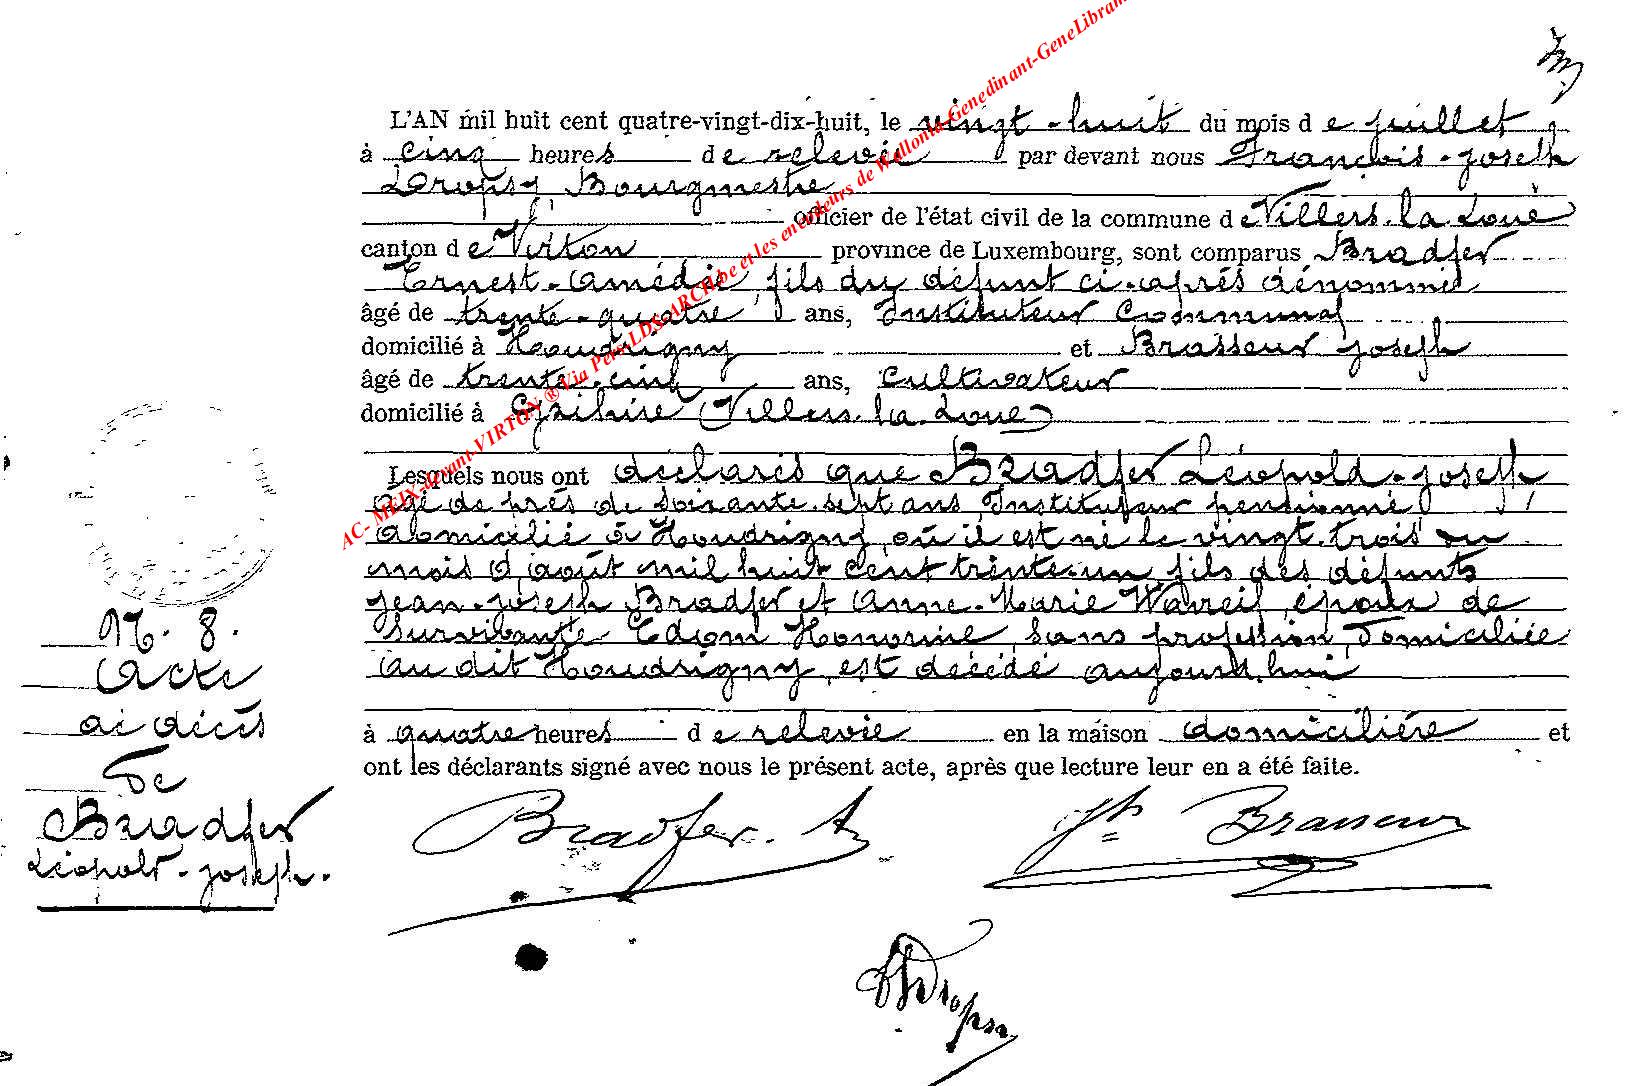 L'AN mil huit cent quatre-vingt-dix-huit, le vingt-huit du mois d e juillet
à cinq heures de relevée par devant nous François-Joseph
Dropsy, Bourgmestre
officier de l'état civil de la commune de Villers-la-Loue
canton de Virton province de Luxembourg, sont comparus Bradfer
Ernest-Amédée, fils du défunt ci-après dénommé
âgé de trente-quatre ans, Instituteur Communal
domicilié à Houdrigny et Brasseur Joseph
âgé de trente-cinq ans, Cultivateur
domicilié à (Villers-la-Loue)
Lesquels nous ont déclarés que Bradfer Léopold-Joseph,
âgé de près de soixante-sept ans, Instituteur pensionné,
domicilié à Houdrigny, où il est né le vingt-trois du
mois d'août mil huit cent trente-un, fils des défunts
Jean-Joseph Bradfer et Anne-Marie époux de
survivante Honorine, sans profession, domiciliée
au dit Houdrigny, est décédé aujourd'hui
à quatre heures de relevée en la maison domicilière et
ont les déclarants signé avec nous le présent acte, après que lecture leur en a été faite.
N. 8.
Acte
de décès
de
Bradfer
Léopold-Joseph.
Bradfer. A
Jh Brasseur
Dropsy
AC- MEIX-devant-VIRTON ® Via Pers-LDS-ARCH.be et les encodeurs de Wallonia-Genedinant-GeneLibram